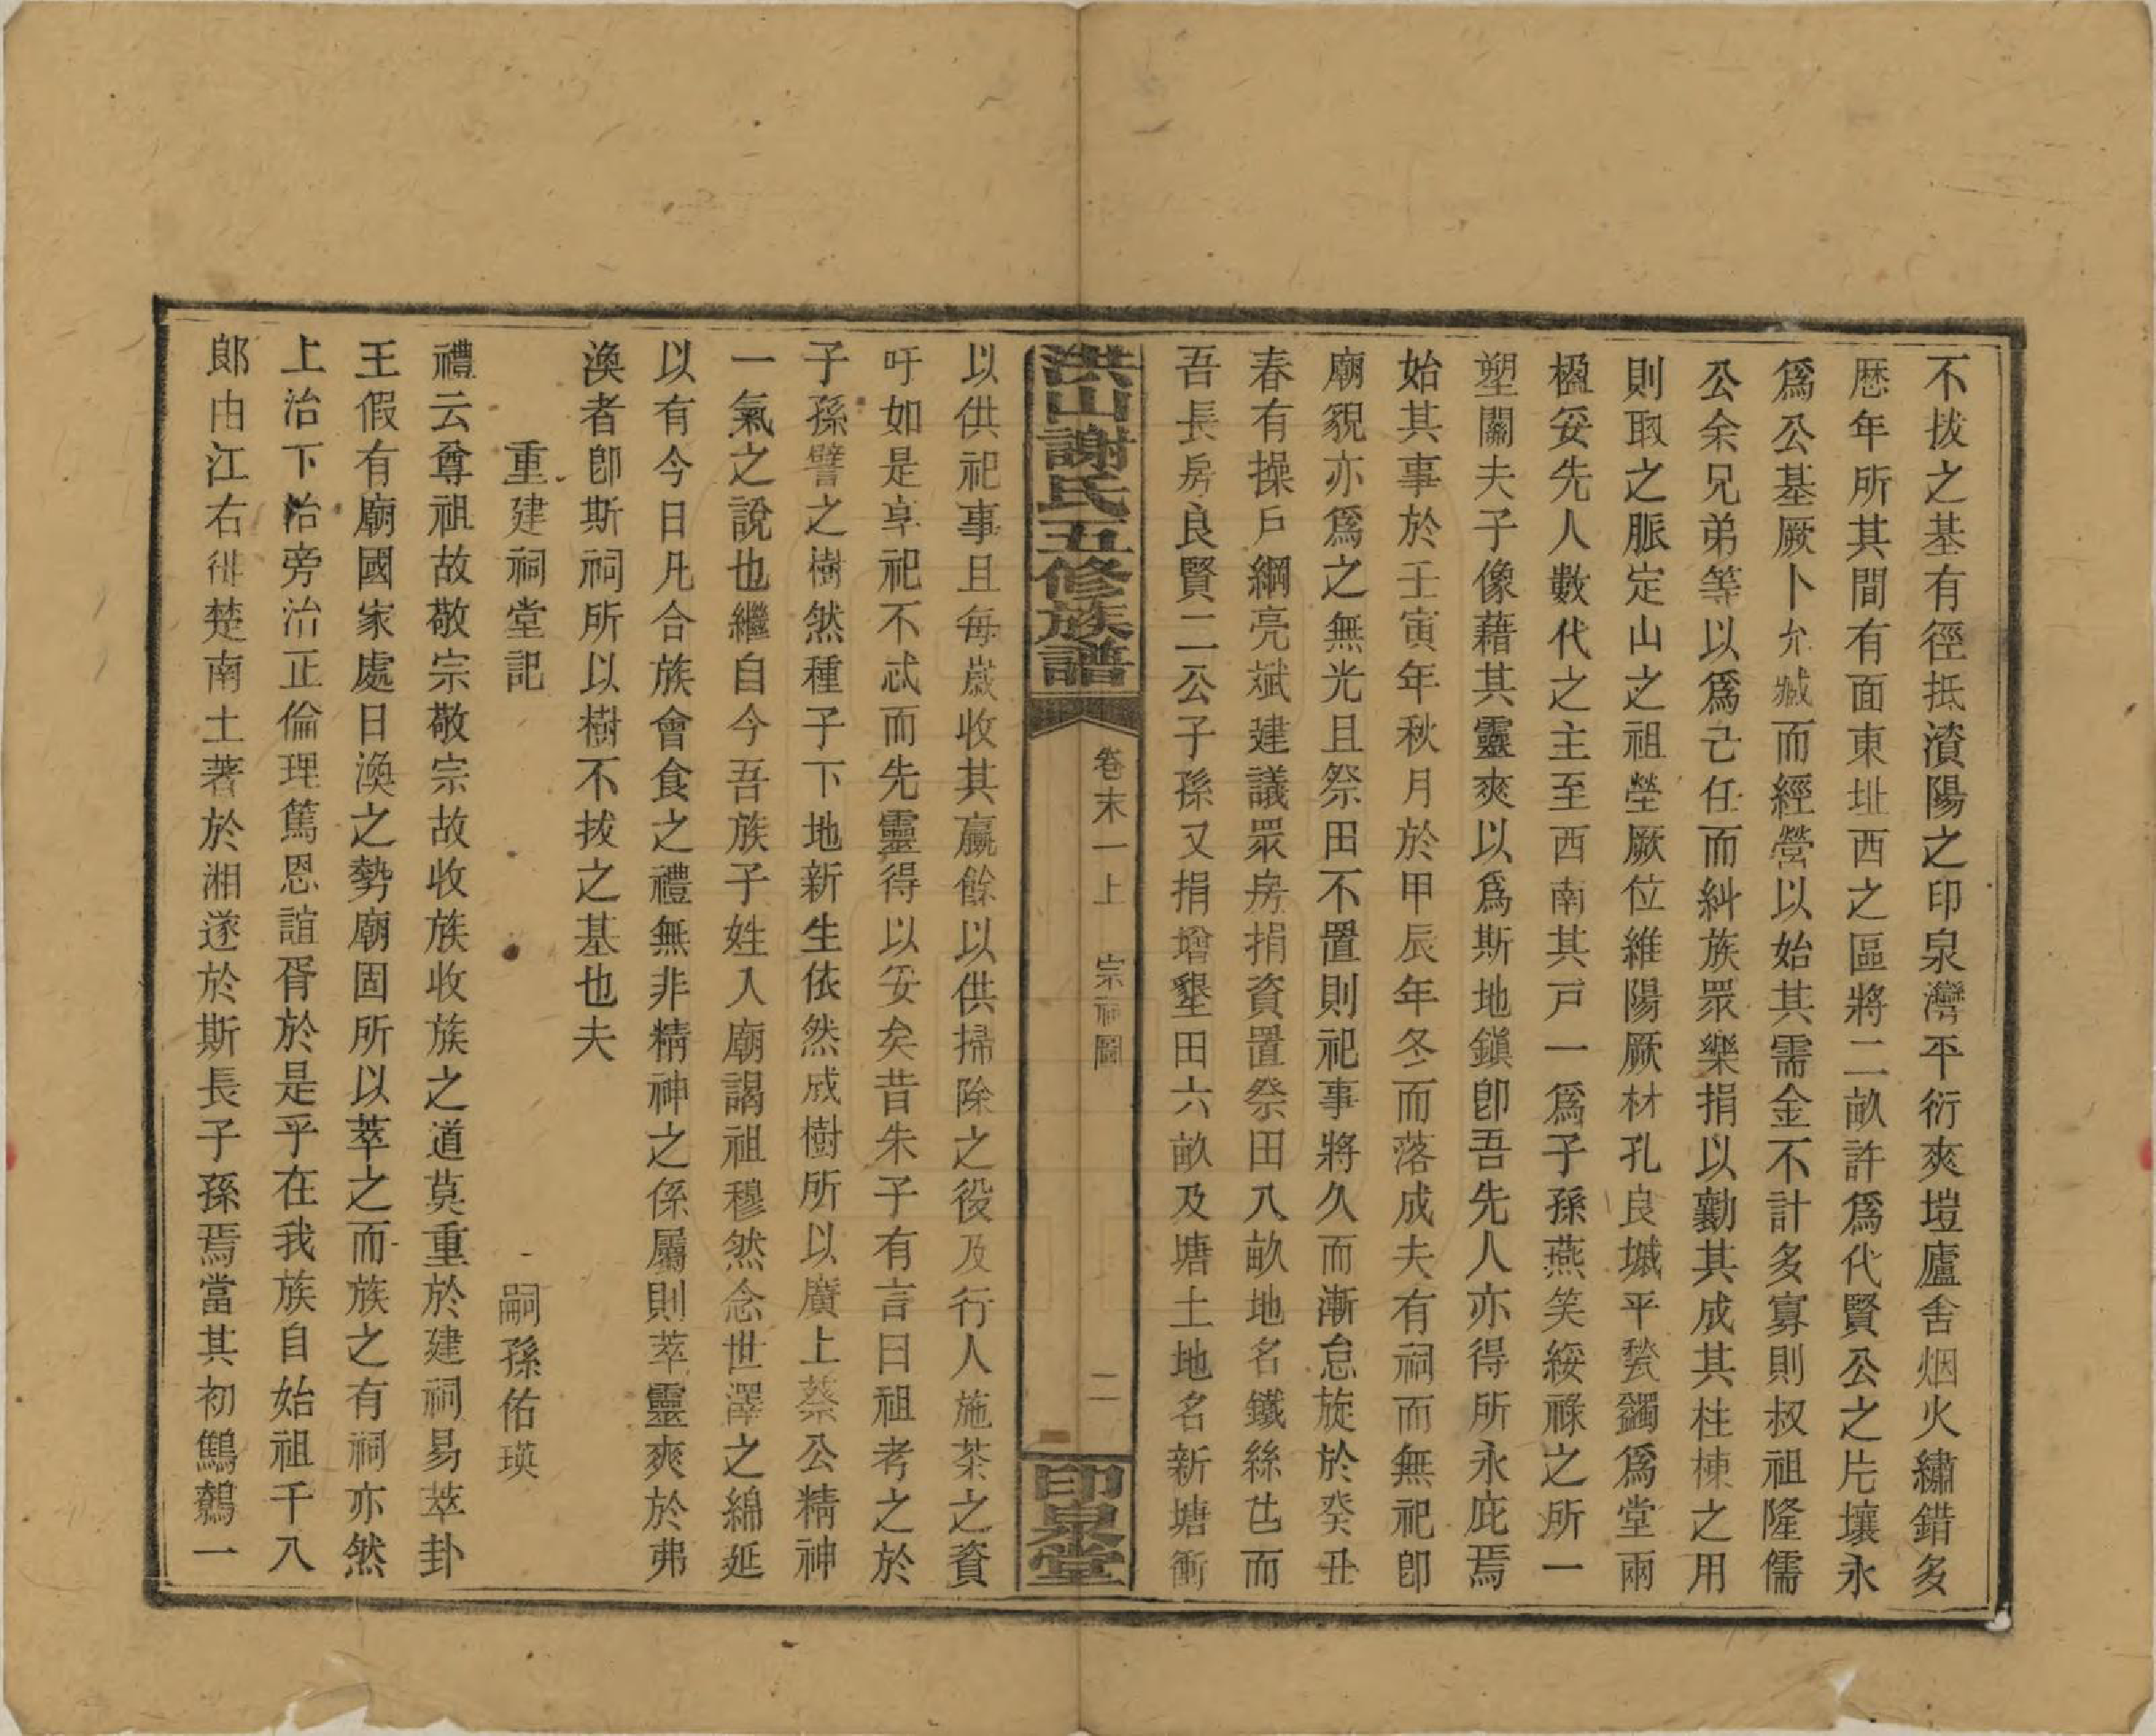 不拔之基有徑抵濆陽之印泉灣平衍爽塏廬舍烟火繡錯多
歷年所其間有面東址西之區將二畝許爲代賢公之片壤永
爲公基厥卜允臧而經營以始其需金不計多寡則扠祖隆儒
公余兄弟等以爲己任而糾族眾樂捐以勷其成其柱棟之用
則取之脈定山之祖塋厥位維陽厥材孔良墄平甃蠲爲堂兩
楹妥先人數代之主至西南其戸一爲子孫燕笑綏祿之所一
塑關夫子像藉其靈爽以爲斯地鎭卽吾先人亦得所永庇焉
始其事於壬寅年秋月於甲辰年冬而落成夫有祠而無祀卽
廟貌亦爲之無光且祭田不置則祀事將久而漸怠旋於癸丑
春有操戶綱亮斌建議眾房捐資置祭田八畝地名鐵絲㐌而
吾長房良賢二公子孫又捐增墾田六畝及塘土地名新塘衝
洪山謝氏五修族譜
卷末一上 宗祠圖
二
印泉堂
以供祀事且每歲收其贏餘以供掃除之役及行人施茶之資
吁如是享祀不忒而先靈得以安矣昔朱子有言曰祖考之於
子孫譬之樹然種子下地新生依然成樹所以廣上蔡公精神
一氣之說也繼自今吾族子姓入廟謁祖穆然念世澤之綿延
以有今日凡合族會食之禮無非精神之係屬則萃靈爽於弗
渙者卽斯祠所以樹不拔之基也夫
重建祠堂記
嗣孫佑瑛
禮云尊祖故敬宗敬宗故收族收族之道莫重於建祠易萃卦
王假有廟國家處日渙之勢廟固所以萃之而族之有祠亦然
上治下治旁治正倫理篤恩誼胥於是乎在我族自始祖千八
郎由江右徙楚南土著於湘遂於斯長子孫焉當其初鷦鷯一